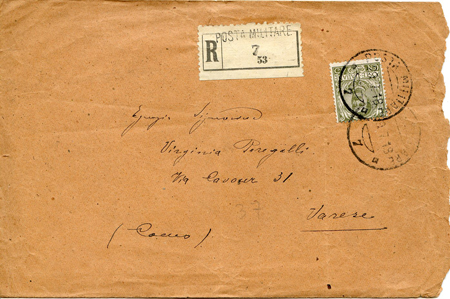 POSTA MILITARE
R
7
53
POSTA MILITARE
7
Egregia Signora
Virginia Peregalli
Via Cavour 31
Varese
(Como)